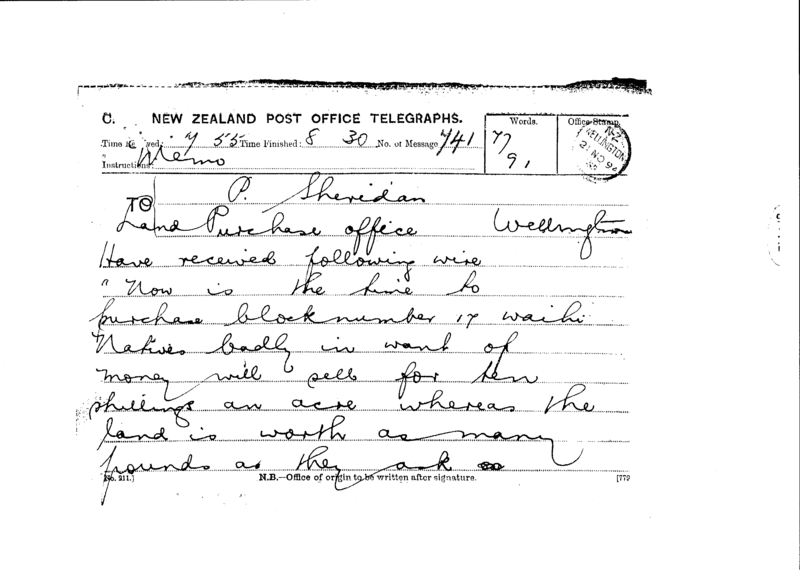 C. NEW ZEALAND POST OFFICE TELEGRAPHS.
Words.
Office Stamp.
Time Received: 7 55 Time Finished: 8 30 No. of Message 741
77
91
N.Z
WELLINGTON
21 NO 94
Instructions: Memo
TO P. Sheridan
Land Purchase office Wellington
Have received following wire
"Now is the time to
purchase block number 17 waihi
Natives badly in want of
money will sell for ten
shillings an acre whereas the
land is worth as many
pounds as they ask
No. 211.] N.B.—Office of origin to be written after signature. [779